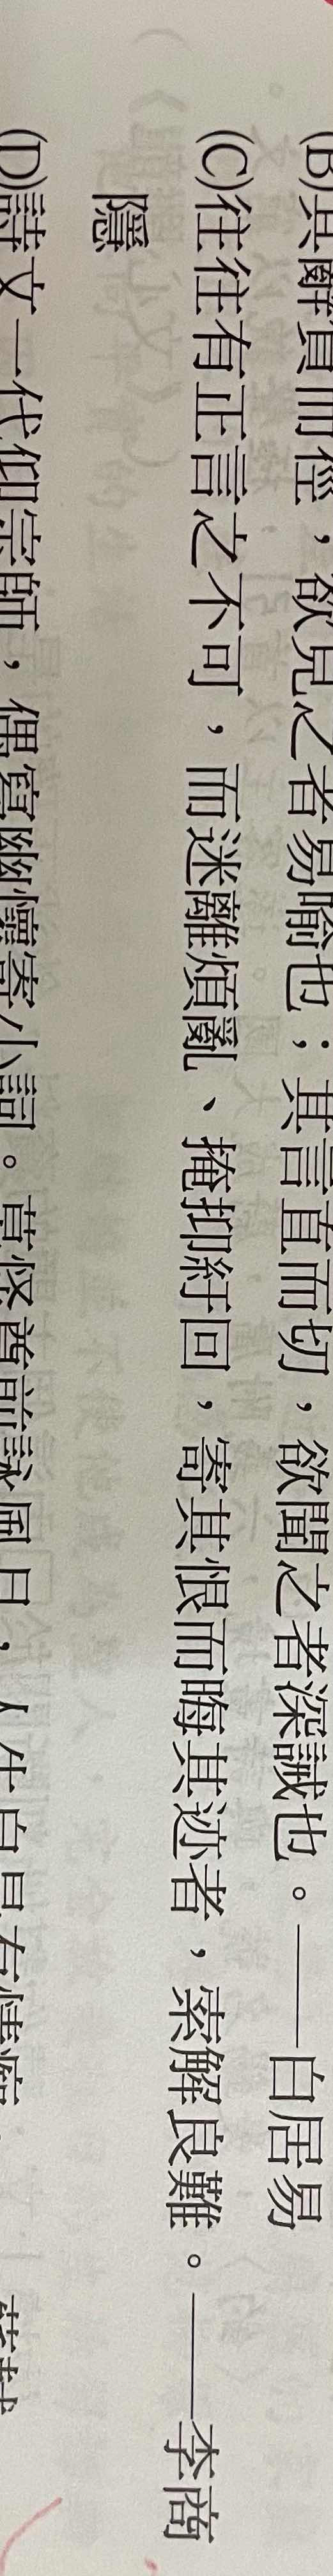 (B)其辭質而徑，欲見之者易喻也；其言直而切，欲聞之者深誡也。——白居易
(C)往往有正言之不可，而迷離煩亂、掩抑紆回，寄其恨而晦其迹者，索解良難。——李商
隱
(D)詩文一代仰宗師，偶寫幽懷寄小詞。莫怪尊前詠風月，人生自是有情癡。